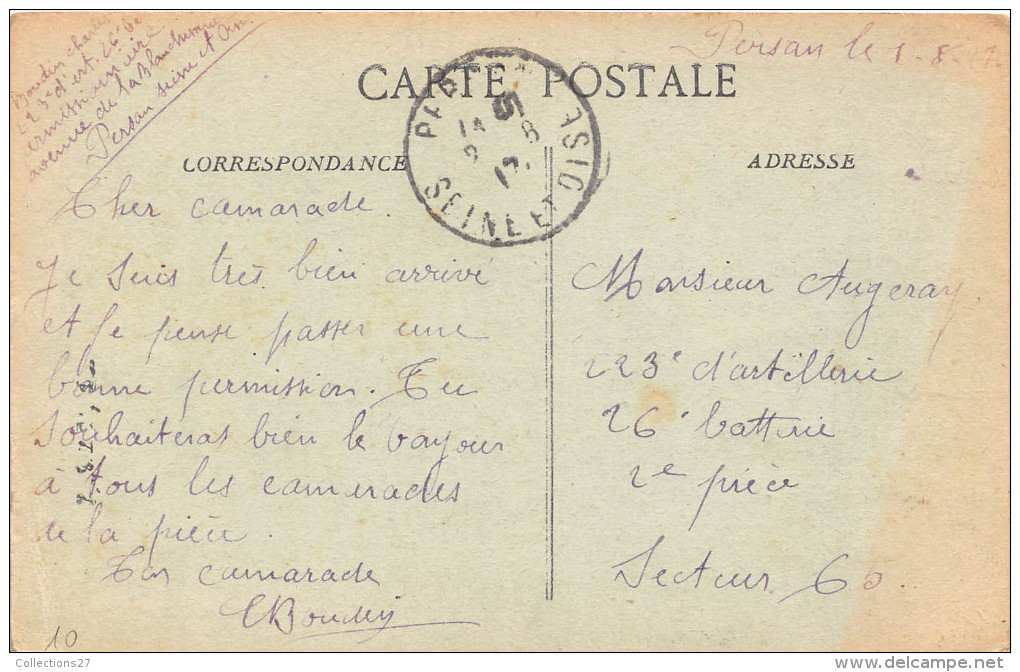 Boudin Charles
223e d'art. 26e be
permissionnaire
avenue de la Blanchisserie
Persan Seine et Oise
Persan le 1-8-17
CARTE POSTALE
CORRESPONDANCE
ADRESSE
SEINE ET OISE
Cher camarade.
Je suis très bien arrivé
et je pense passer une
bonne permission. Tu
souhaiteras bien le bonjour
à tous les camarades
de la pièce.
Ton camarade
CBoudin
Monsieur Augeray.
223e d'artillerie
26e batterie
2e pièce
Secteur 65.
10
Collections27
www.delcampe.net